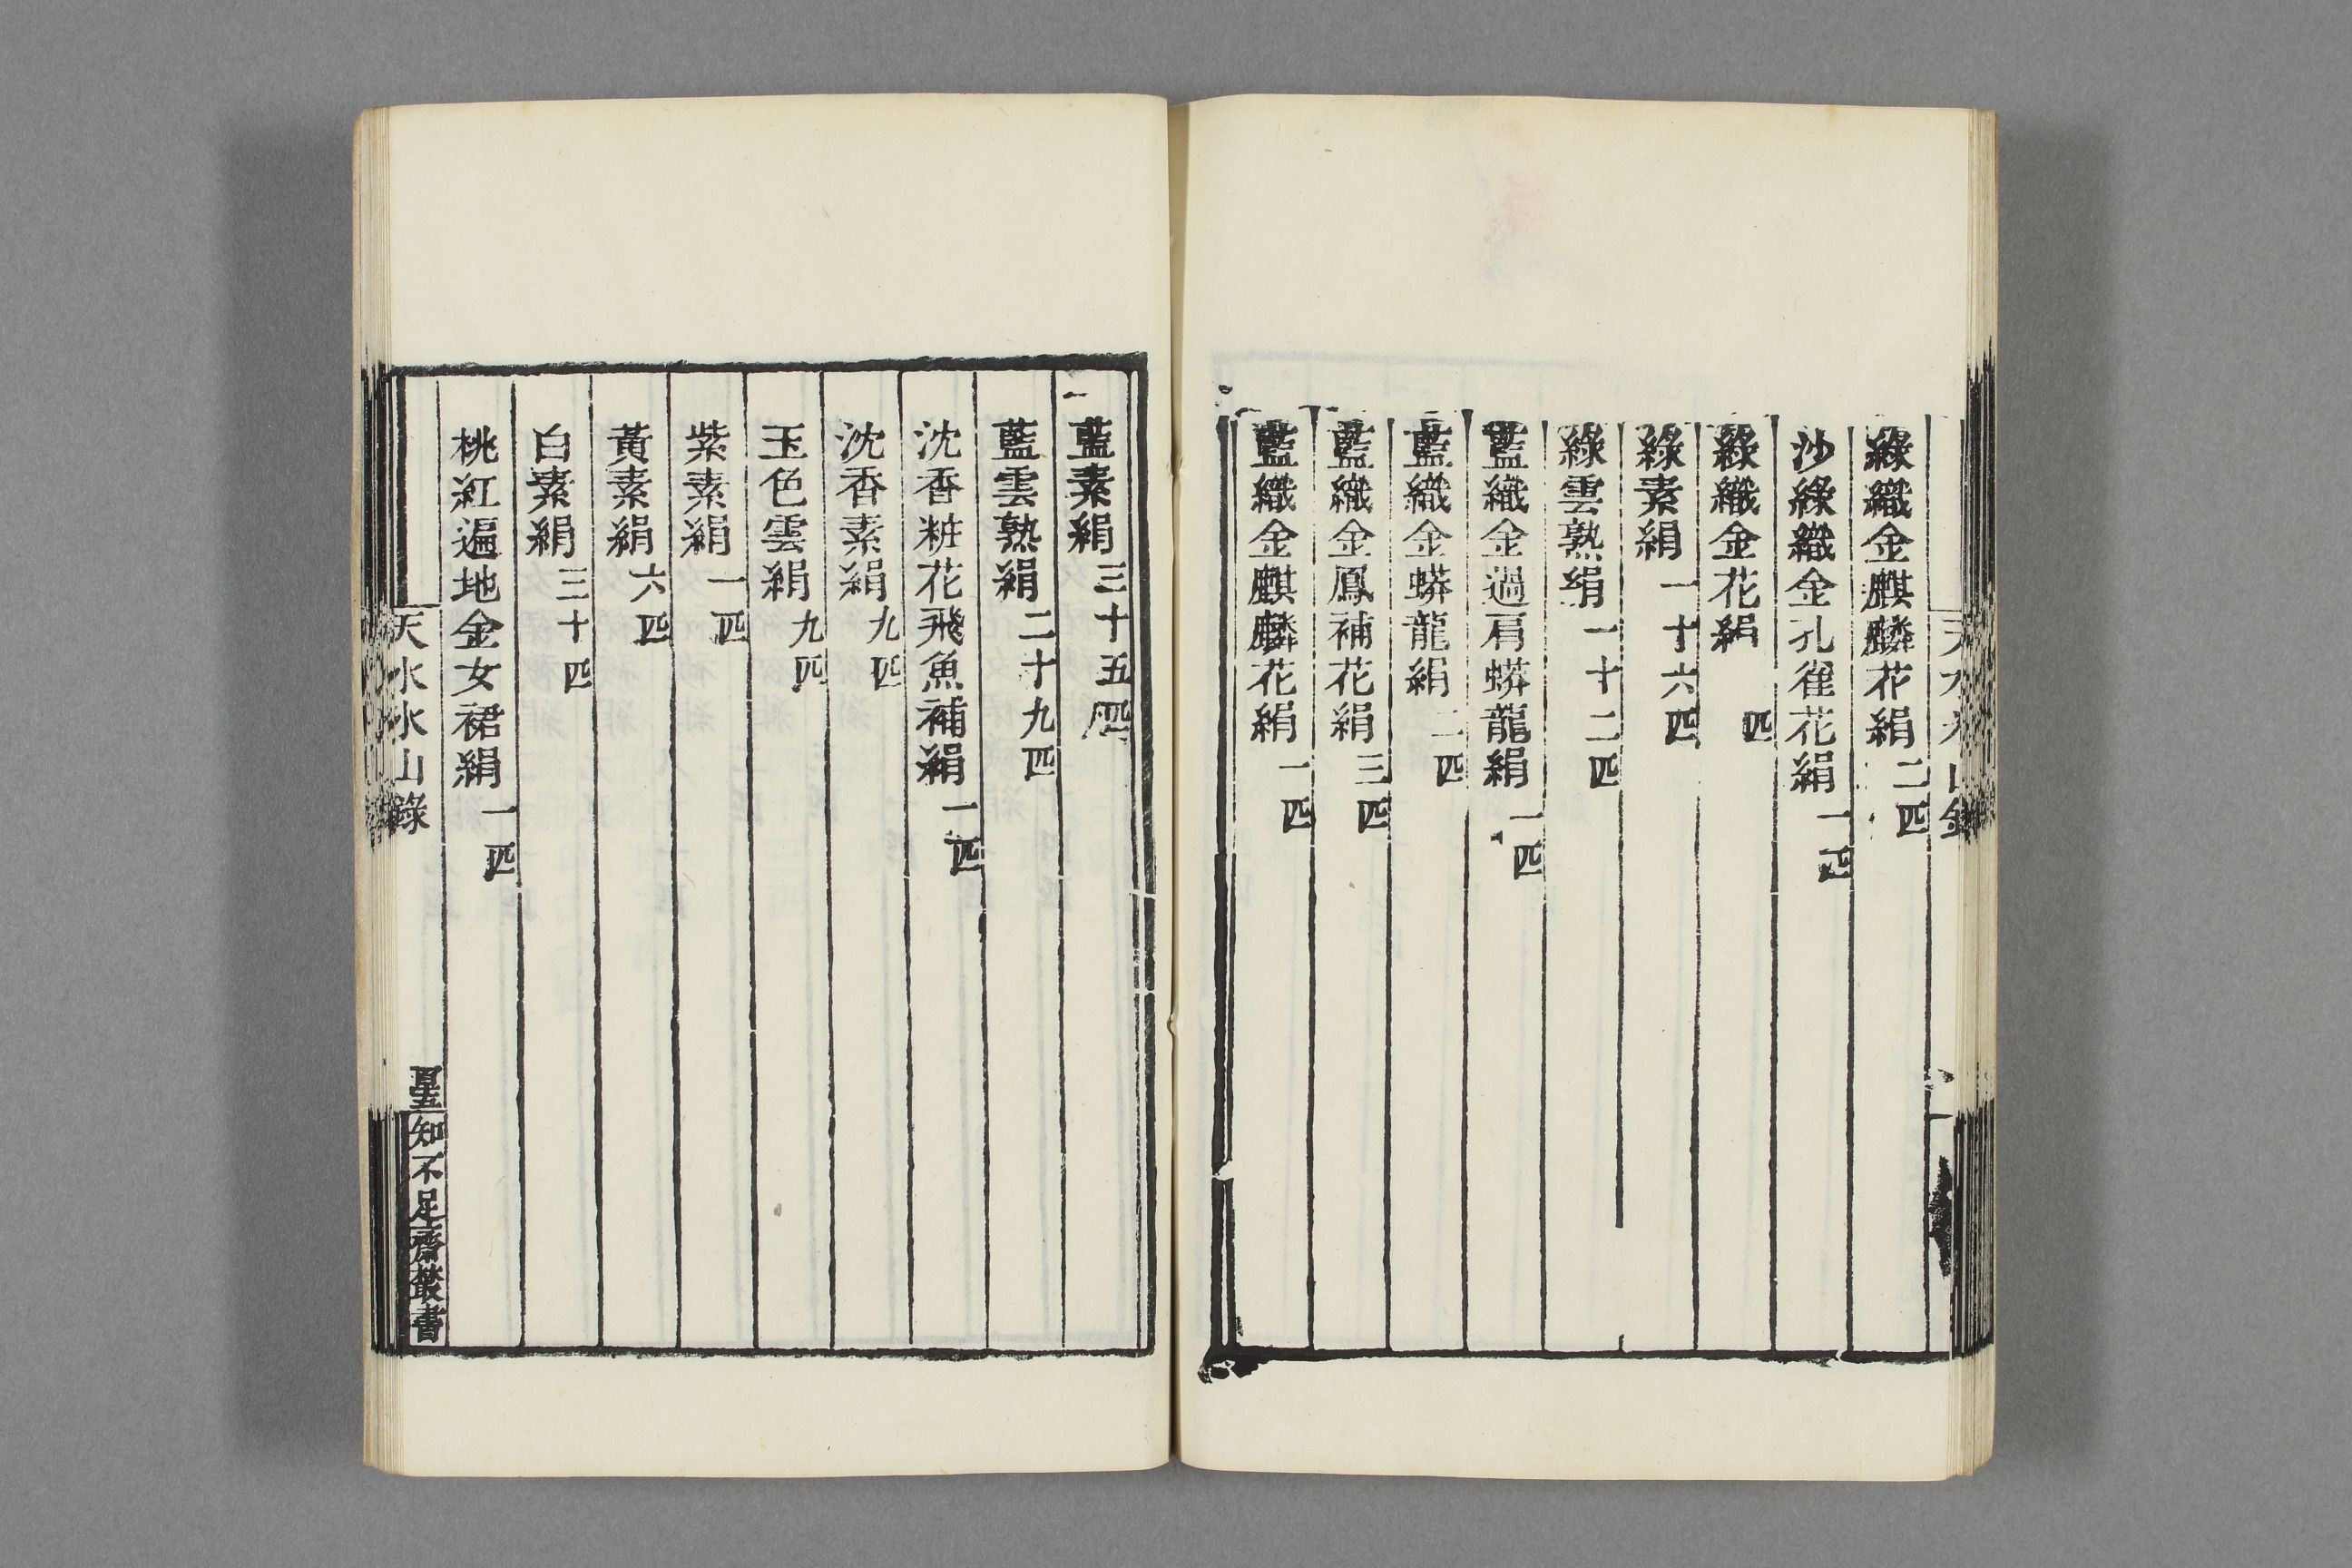 綠織金麒麟花絹二匹
沙綠織金孔雀花絹一匹
綠織金花絹 匹
綠素絹一十六匹
綠雲熟絹一十二匹
藍織金過肩蟒龍絹一匹
藍織金蟒龍絹二匹
藍織金鳳補花絹三匹
藍織金麒麟花絹一匹
藍素絹三十五匹
藍雲熟絹二十九匹
沈香粧花飛魚補絹一匹
沈香素絹九匹
玉色雲絹九匹
紫素絹一匹
黃素絹六匹
白素絹三十匹
桃紅遍地金女裙絹一匹
天水冰山錄
知不足齋叢書